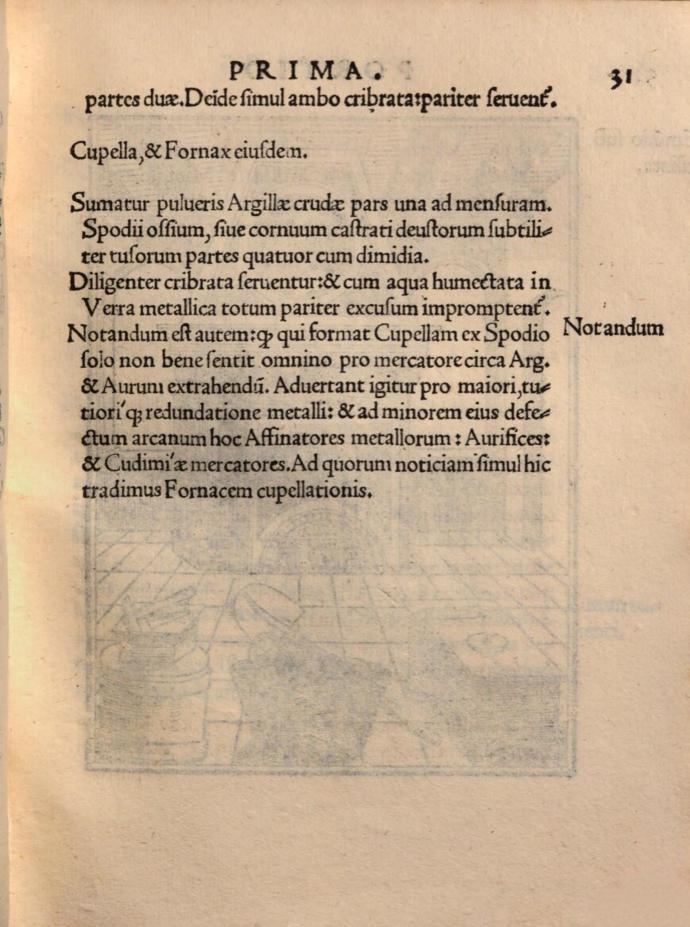 PRIMA.
31
partes duæ.Deīde simul ambo cribrata:pariter seruent᷑.
Cupella,& Fornax eiusdem.
Sumatur pulueris Argillæ crudæ pars una ad mensuram.
Spodii ossium, siue cornuum castrati deustorum subtili-
ter tusorum partes quatuor cum dimidia.
Diligenter cribrata seruentur:& cum aqua humectata in
Verra metallica totum pariter excusum impromptent᷑.
Notandum est autem:ꝙ qui format Cupellam ex Spodio
Notandum
solo non bene sentit omnino pro mercatore circa Arg.
& Aurum extrahendū. Aduertant igitur pro maiori,tu-
tioriꝗ; redundatione metalli: & ad minorem eius defe-
ctum arcanum hoc Affinatores metallorum : Aurifices:
& Cudimiæ mercatores.Ad quorum noticiam simul hic
tradimus Fornacem cupellationis.